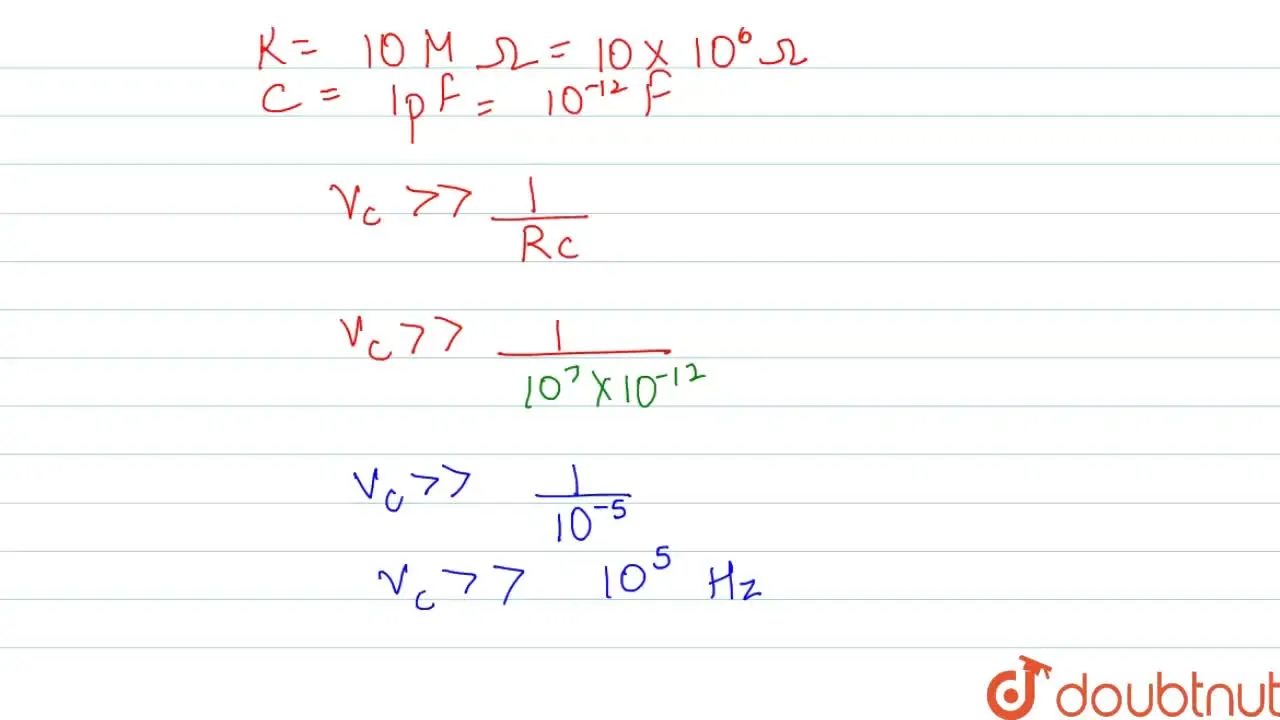 R = 10 M Ω = 10 x 10⁶ Ω
C = 1pF = 10⁻¹² F
ν_c >> 1/RC
ν_c >> 1/10⁷ x 10⁻¹²
ν_c >> 1/10⁻⁵
ν_c >> 10⁵ Hz
doubtnut